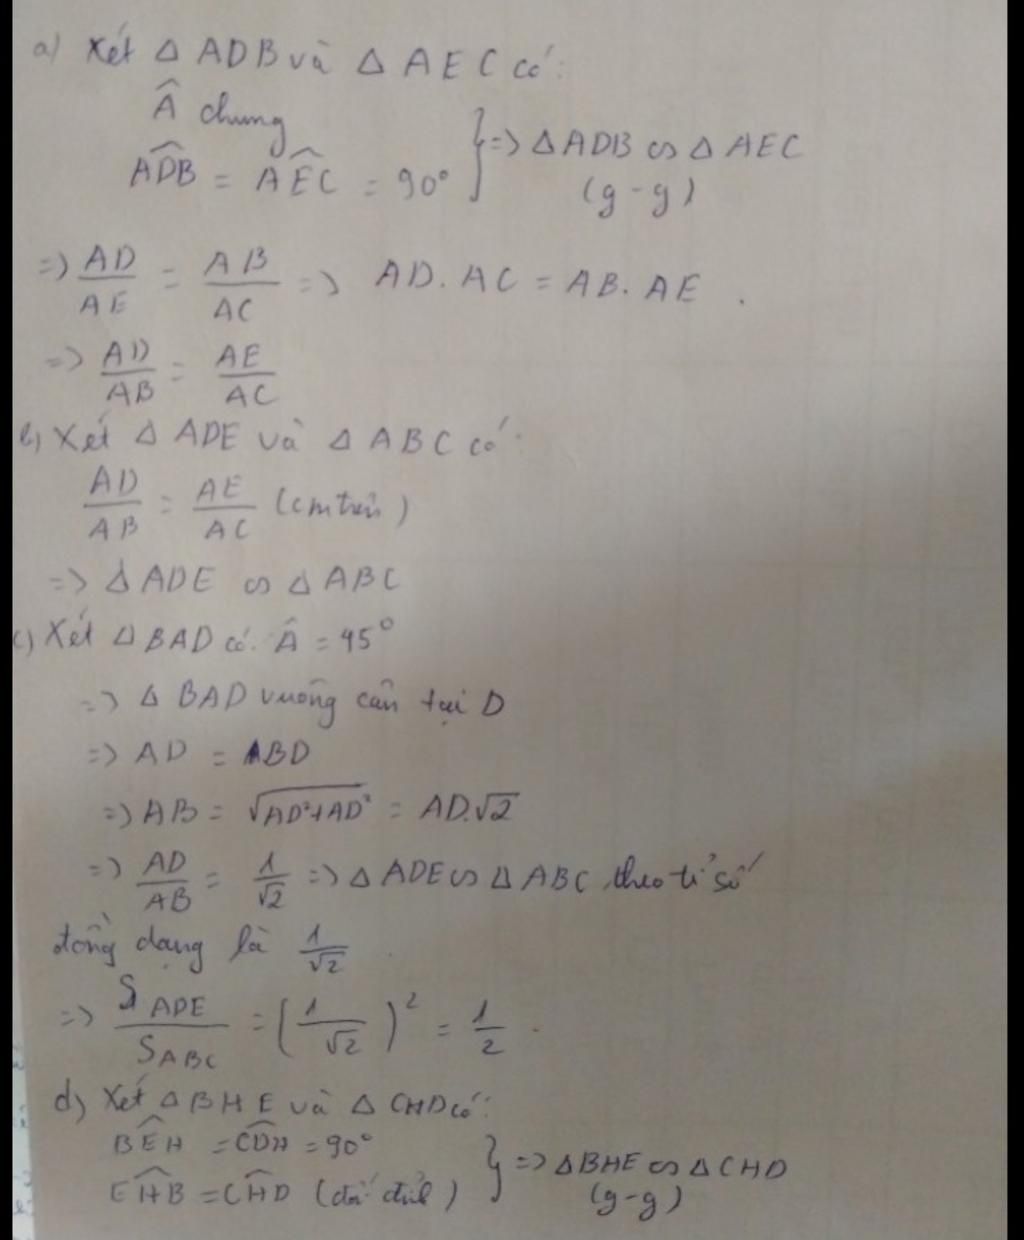 a) Xét Δ ADB và Δ AEC có:
Â chung
ADB̂ = AÊC = 90° } => ΔADB ∽ Δ AEC
(g-g)
=> AD/AE = AB/AC => AD.AC = AB.AE.
=> AD/AB = AE/AC
b) Xét Δ ADE và Δ ABC có:
AD/AB = AE/AC (cm trên)
=> Δ ADE ∽ Δ ABC
c) Xét ΔBAD có: Â = 45°
=> Δ BAD vuông cân tại D
=> AD = BD
=> AB = √(AD²+AD²) = AD.√2
=> AD/AB = 1/√2 => Δ ADE ∽ Δ ABC theo tỉ số
đồng dạng là 1/√2.
=> S ADE/S ABC = (1/√2)² = 1/2.
d) Xét Δ BHE và Δ CHD có:
BÊH = CD̂H = 90°
EĤB = CĤD (đối đỉnh) } => ΔBHE ∽ Δ CHD
(g-g)